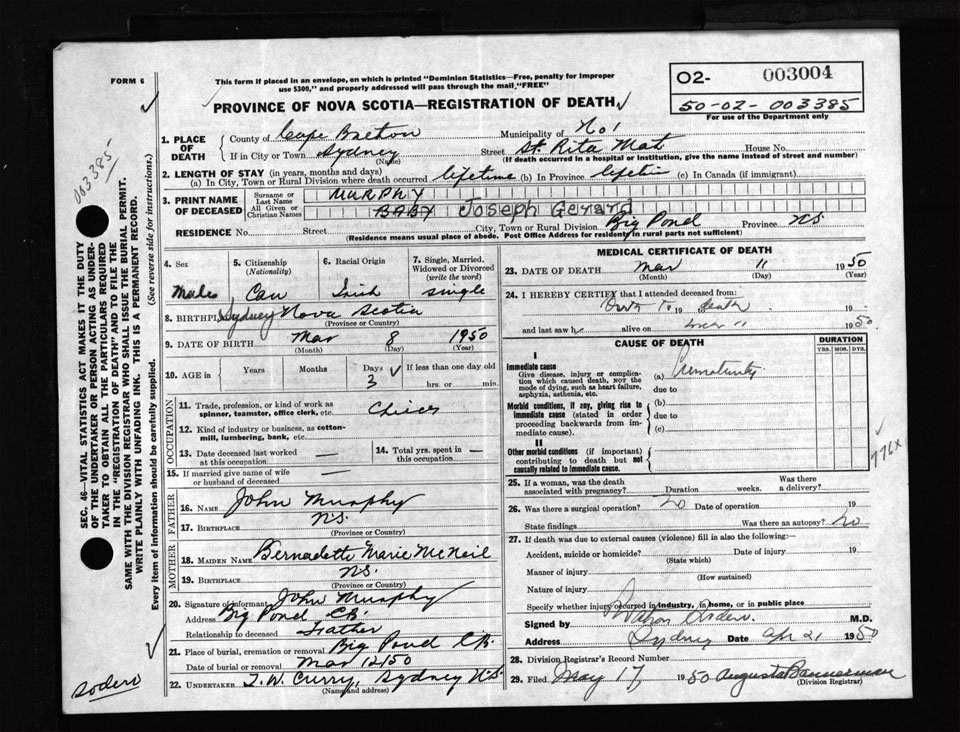 FORM 6
This form if placed in an envelope, on which is printed "Dominion Statistics—Free, penalty for improper
use $300," and properly addressed will pass through the mail "FREE"
PROVINCE OF NOVA SCOTIA—REGISTRATION OF DEATH
02- 003004
50-02-003385
For use of the Department only
003385
SEC. 46—VITAL STATISTICS ACT MAKES IT THE DUTY
OF THE UNDERTAKER OR PERSON ACTING AS UNDER-
TAKER TO OBTAIN ALL THE PARTICULARS REQUIRED
IN THE "REGISTRATION OF DEATH" AND TO FILE THE
SAME WITH THE DIVISION REGISTRAR WHO SHALL ISSUE THE BURIAL PERMIT.
WRITE PLAINLY WITH UNFADING INK. THIS IS A PERMANENT RECORD.
Every item of information should be carefully supplied. (See reverse side for instructions.)
1. PLACE OF DEATH County of Cape Breton Municipality of No 1
If in City or Town Sydney Street St. Rita Mat House No.
(Name) (If death occurred in a hospital or institution, give the name instead of street and number)
2. LENGTH OF STAY (in years, months and days)
(a) In City, Town or Rural Division where death occurred lifetime (b) In Province (c) In Canada (if immigrant)
3. PRINT NAME OF DECEASED Surname or Last Name MURPHY
All Given or Christian Names BABY Joseph Gerard
RESIDENCE No. Street City, Town or Rural Division Big Pond Province NS
(Residence means usual place of abode. Post Office Address for residency in rural parts not sufficient)
4. Sex 5. Citizenship (Nationality) 6. Racial Origin 7. Single, Married, Widowed or Divorced (write the word)
Male Can Irish single
8. BIRTHPL Sydney Nova Scotia
(Province or Country)
9. DATE OF BIRTH Mar 8 1950
(Month) (Day) (Year)
10. AGE in Years Months Days 3 If less than one day old hrs. or min.
OCCUPATION
11. Trade, profession or kind of work as spinner, teamster, office clerk, etc.
12. Kind of industry or business, as cotton-mill, lumbering, bank, etc.
13. Date deceased last worked at this occupation — 14. Total yrs. spent in this occupation —
15. If married give name of wife or husband of deceased
FATHER
16. Name John Murphy
17. Birthplace NS.
(Province or Country)
MOTHER
18. Maiden Name Bernadette Marie McNeil
19. Birthplace NS.
(Province or Country)
20. Signature of informant John Murphy
Address Big Pond CB.
Relationship to deceased Father
21. Place of burial, cremation or removal Big Pond CB.
Date of burial or removal Mar 12/50
22. Undertaker T.W. Curry, Sydney NS
(Name and address)
MEDICAL CERTIFICATE OF DEATH
23. DATE OF DEATH Mar 11 1950
(Month) (Day) (Year)
24. I HEREBY CERTIFY that I attended deceased from:
19 to death 19
and last saw h alive on 1950.
CAUSE OF DEATH DURATION
YRS. MOS. DYS.
I
Immediate cause
Give disease, injury or complication which caused death, not the mode of dying, such as heart failure, asphyxia, asthenia, etc.
(a) Prematurity
due to
Morbid conditions, if any, giving rise to immediate cause (stated in order proceeding backwards from immediate cause).
(b)
due to
(c)
II
Other morbid conditions (if important) contributing to death but not causally related to immediate cause.
776X
25. If a woman, was the death associated with pregnancy? Duration weeks. Was there a delivery?
26. Was there a surgical operation? No Date of operation 19
State findings Was there an autopsy? No
27. If death was due to external causes (violence) fill in also the following:—
Accident, suicide or homicide? Date of injury 19
(State which)
Manner of injury
(How sustained)
Nature of injury
Specify whether injury occurred in industry, in home, or in public place
Signed by M.D.
Address Sydney Date Apr 21 1950
28. Division Registrar's Record Number
29. Filed May 17 1950 Augusta Bannerman
(Division Registrar)